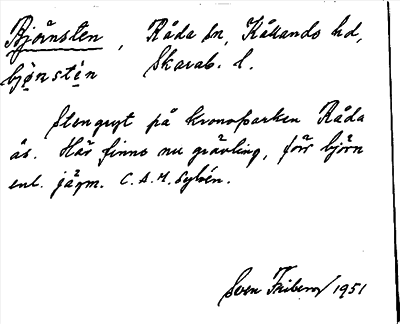 Björnsten, Råda sn, Kållands hd,
bjö̱nstén Skarab. l.
Stengryt på kronoparken Råda
ås. Här finns nu grävling, förr björn
enl. jägm. C.A.M. Sylvén.
Sven Friberg 1951